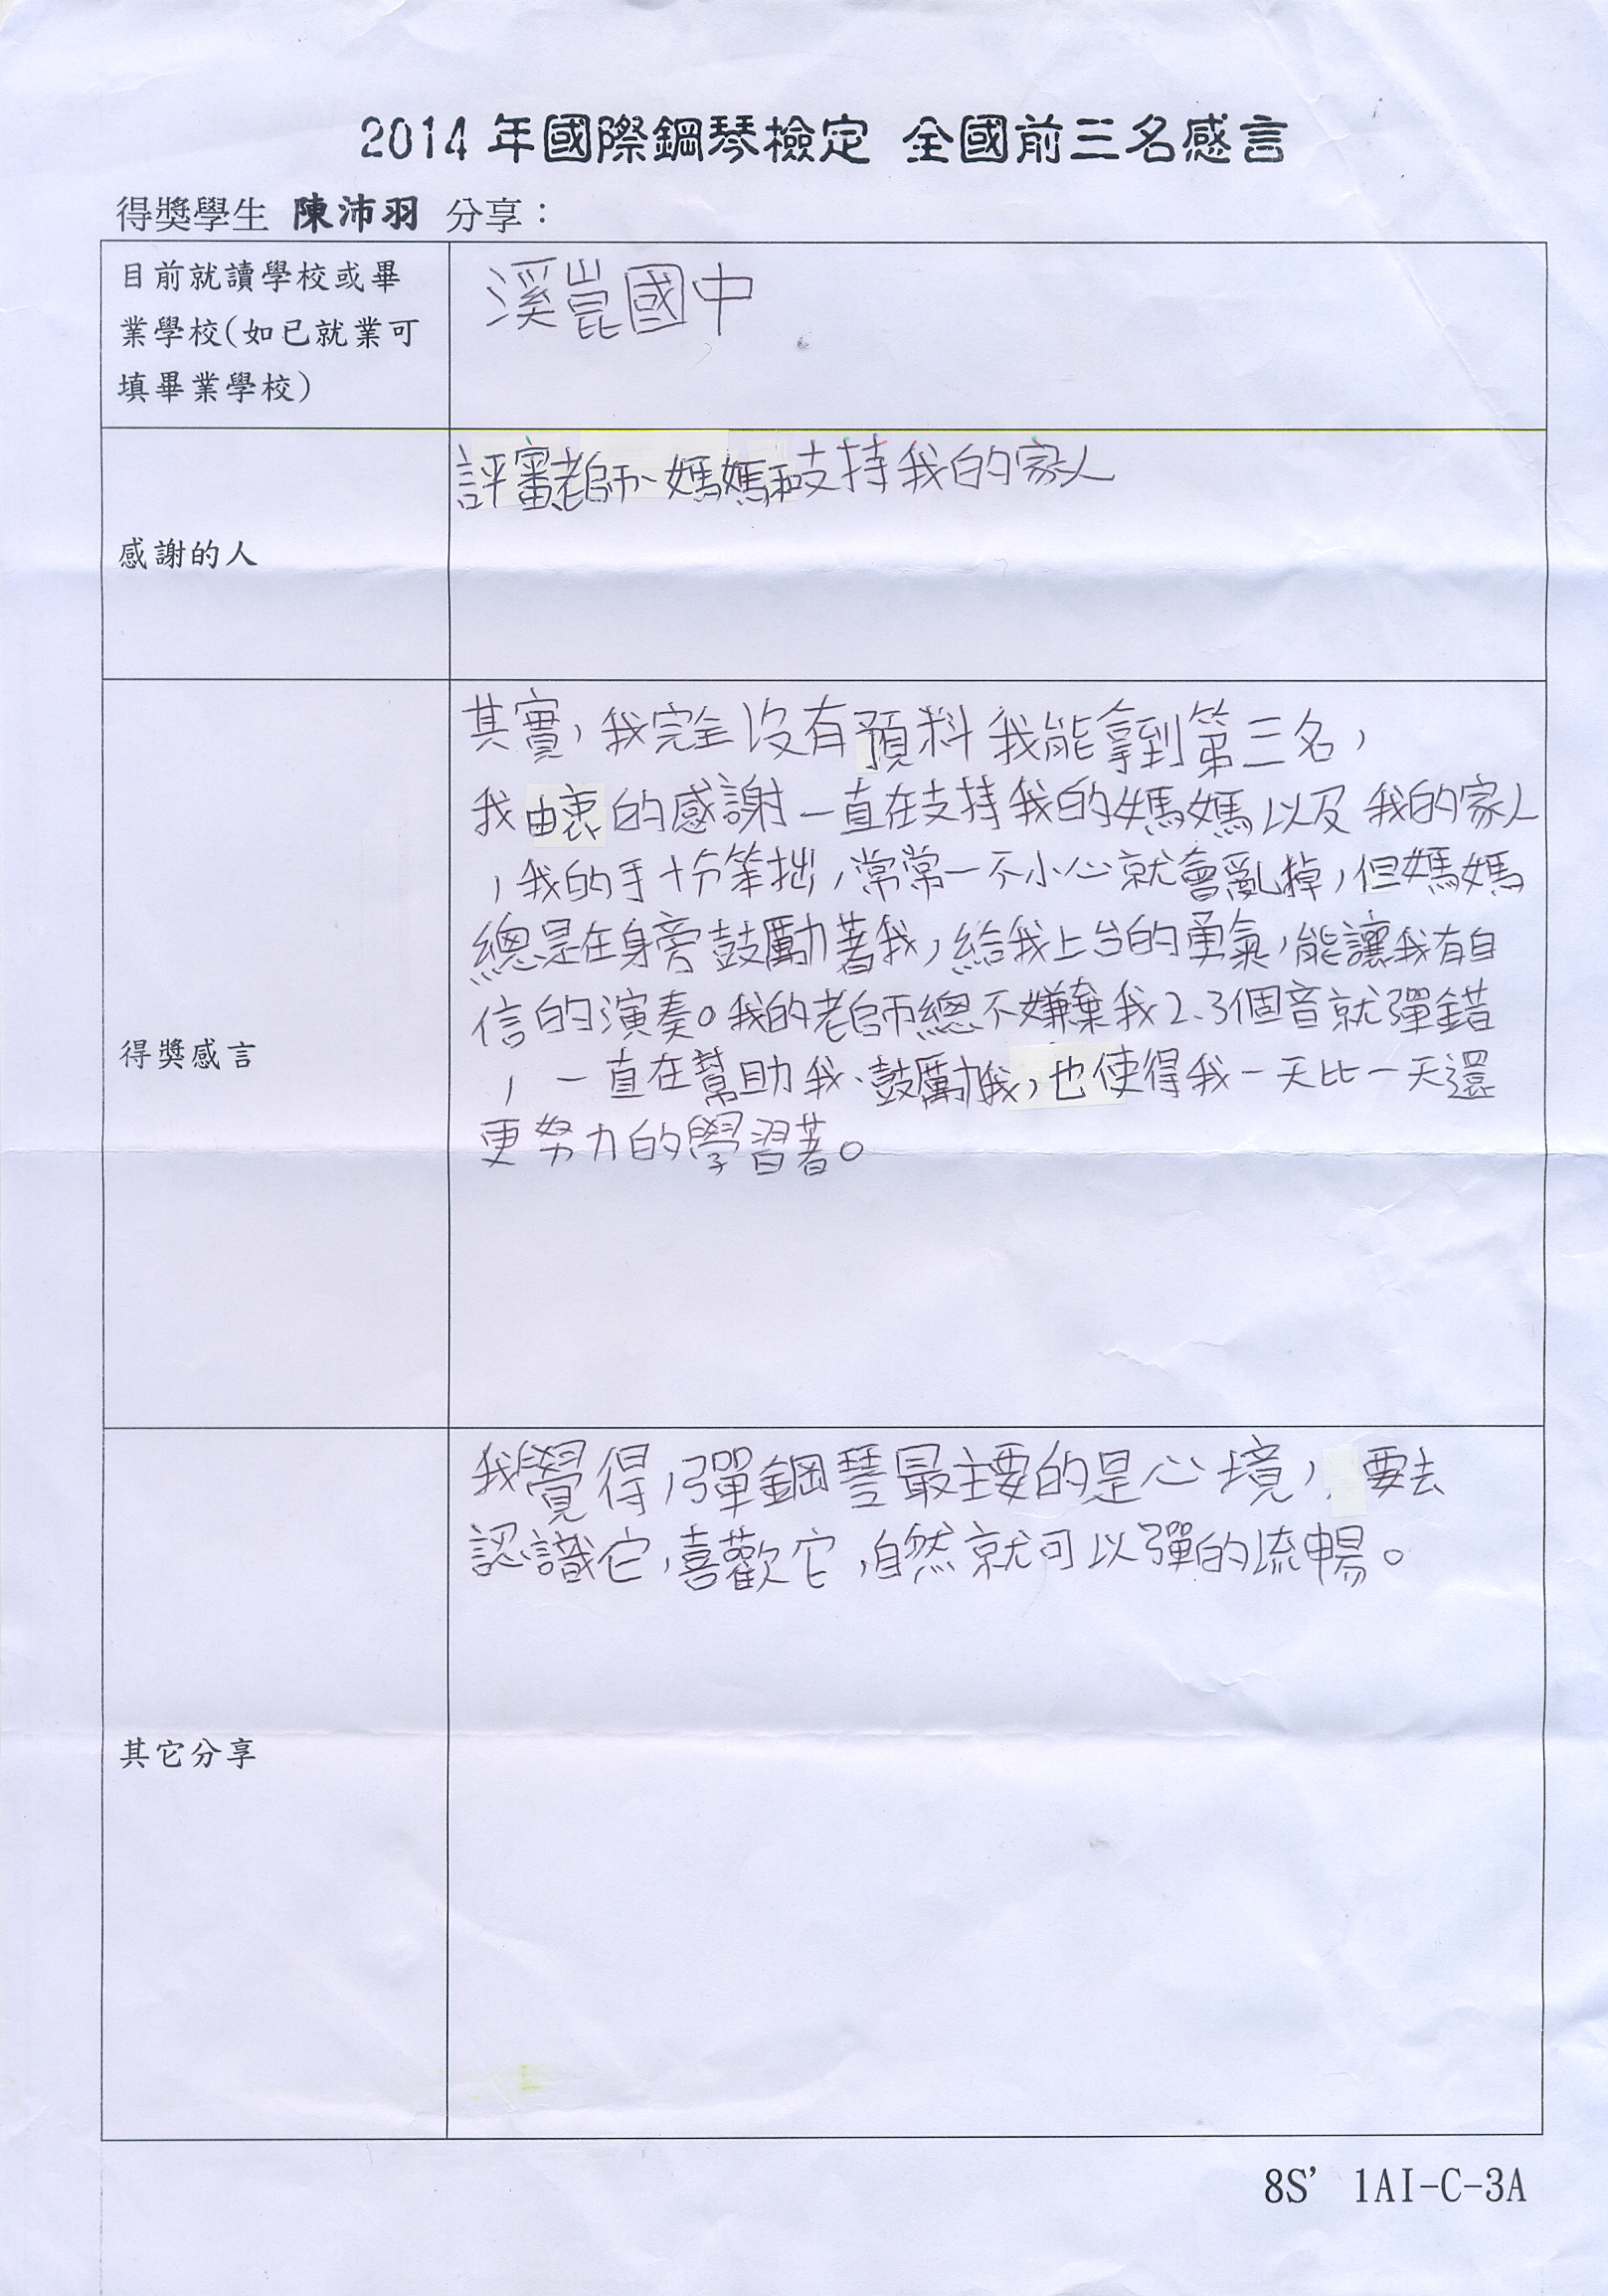 2014年國際鋼琴檢定 全國前三名感言
得獎學生 陳沛羽 分享：
目前就讀學校或畢
業學校(如已就業可
填畢業學校)
溪崑國中
感謝的人
評審老師、媽媽和支持我的家人
得獎感言
其實，我完全沒有預料我能拿到第三名，
我由衷的感謝一直在支持我的媽媽以及我的家人
，我的手十分笨拙，常常一不小心就會亂掉，但媽媽
總是在身旁鼓勵著我，給我上台的勇氣，能讓我有自
信的演奏。我的老師總不嫌棄我2、3個音就彈錯
，一直在幫助我、鼓勵我，也使得我一天比一天還
更努力的學習著。
其它分享
我覺得，彈鋼琴最主要的是心境，要去
認識它，喜歡它，自然就可以彈的流暢。
8S' 1AI-C-3A